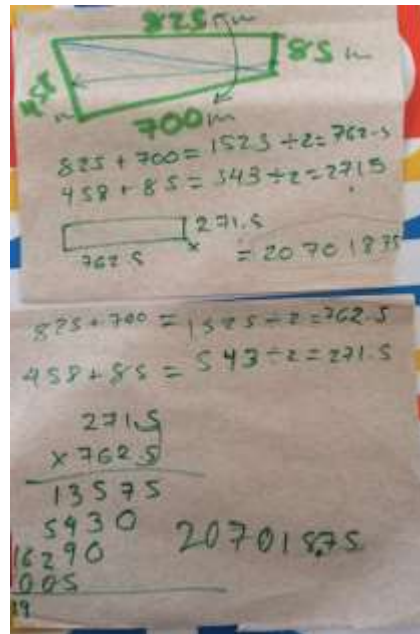 825 m
85 m
458
m
700 m
825 + 700 = 1525 ÷ 2 = 762.5
458 + 85 = 543 ÷ 2 = 271.5
271.5
762.5
×
= 20701875
825 + 700 = 1525 ÷ 2 = 762.5
458 + 85 = 543 ÷ 2 = 271.5
271.5
× 762 5
13575
5430
16290
005
20701875